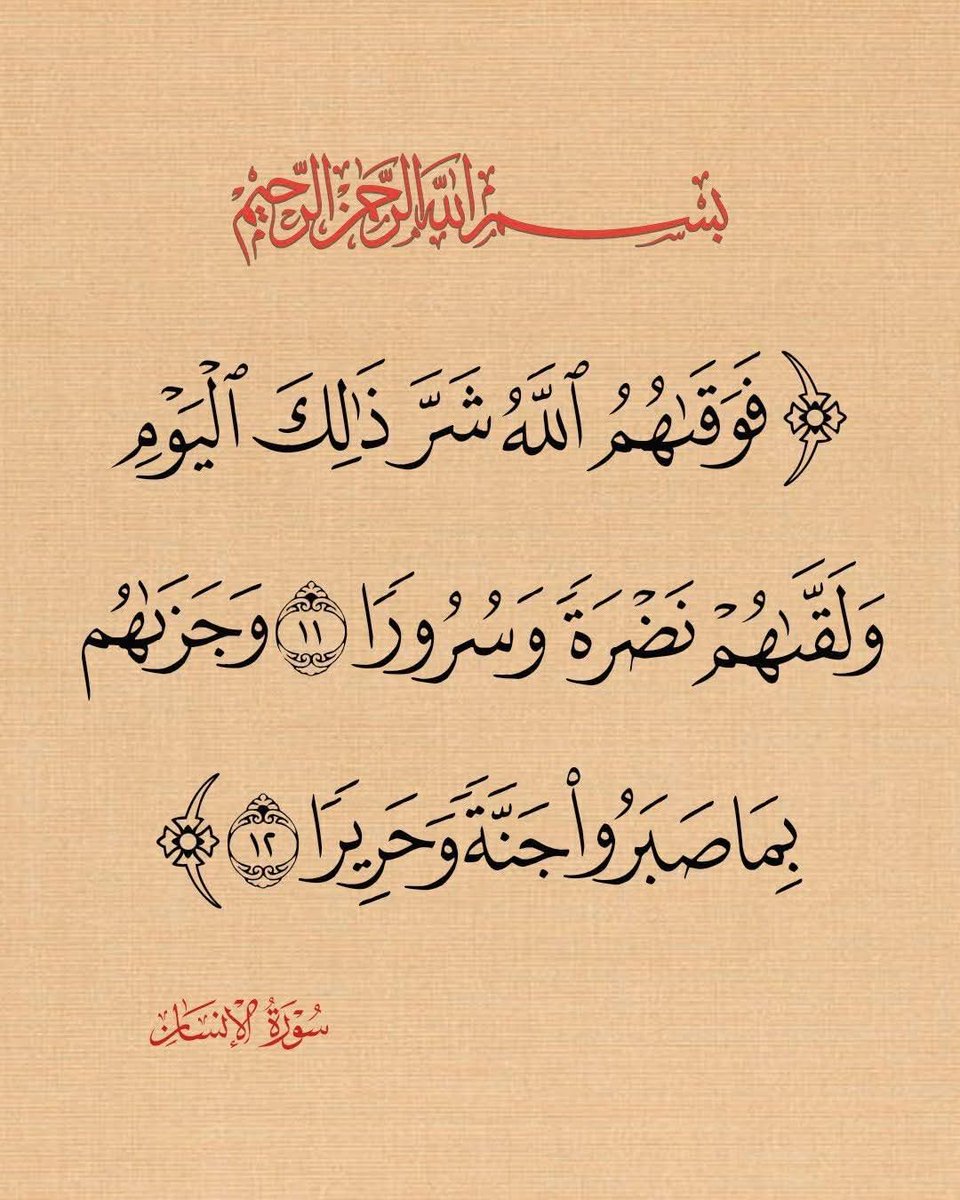 بِسْمِ اللَّهِ الرَّحْمَٰنِ الرَّحِيمِ
﴿ فَوَقَىٰهُمُ ٱللَّهُ شَرَّ ذَٰلِكَ ٱلْيَوْمِ
وَلَقَّىٰهُمْ نَضْرَةً وَسُرُورًا ١١ وَجَزَىٰهُم
بِمَا صَبَرُوا۟ جَنَّةً وَحَرِيرًا ١٢ ﴾
سُورَةُ الإِنسَانِ